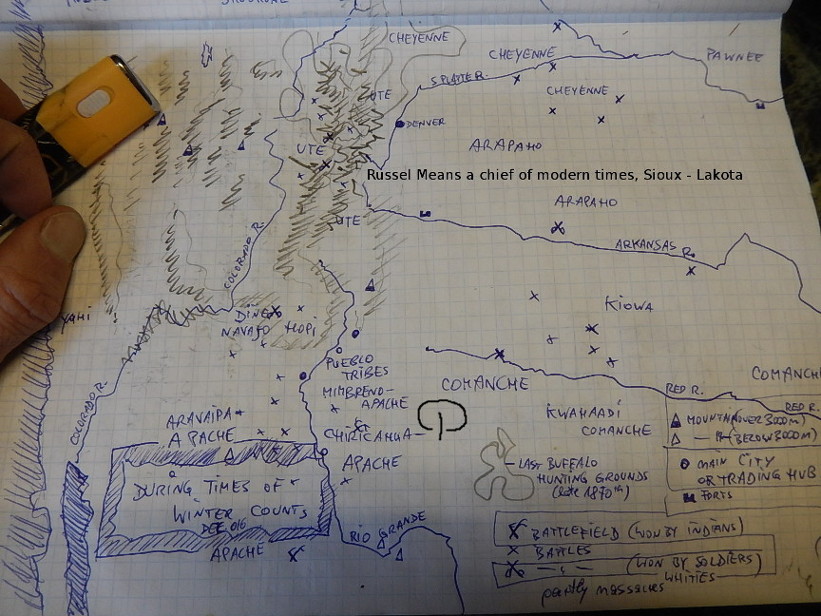 CHEYENNE
CHEYENNE
PAWNEE
S. PLATTE R.
UTE
CHEYENNE
DENVER
ARAPAHO
UTE
Russel Means a chief of modern times, Sioux - Lakota
ARAPAHO
UTE
COLORADO R.
ARKANSAS R.
YAHI
DINE
NAVAJO HOPI
KIOWA
PUEBLO
TRIBES
COLORADO R.
MIMBRENO-
APACHE
COMANCHE
COMANCH
RED R.
RED R.
ARAVAIPA-
APACHE
CHIRICAHUA-
APACHE
KWAHAADI
COMANCHE
MOUNT (OVER 3000m)
(BELOW 3000m)
LAST BUFFALO
HUNTING GROUNDS
(late 1870ies)
MAIN CITY
OR TRADING HUB
FORTS
DURING TIMES OF
WINTER COUNTS
DEC. 016
APACHE
RIO GRANDE
BATTLEFIELD (WON BY INDIANS)
BATTLES
(WON BY SOLDIERS)
WHITIES
partly massacres